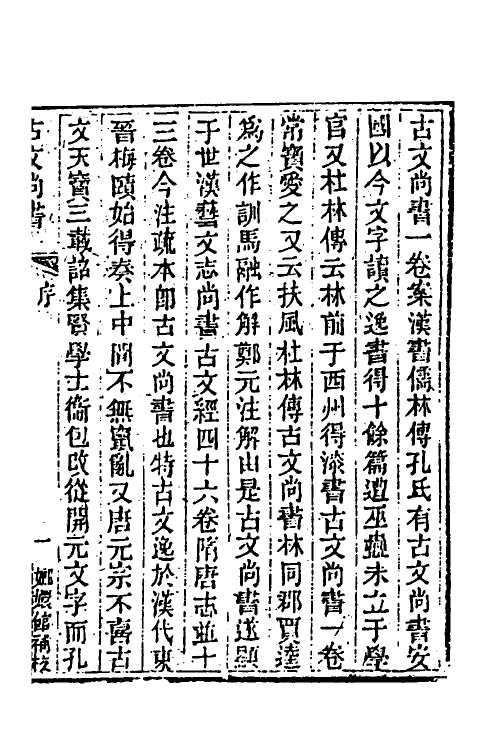 古文尚書一卷案漢書儒林傳孔氏有古文尚書安
國以今文字讀之逸書得十餘篇遭巫蠱未立于學
官又杜林傳云林前于西州得漆書古文尚書一卷
常寶愛之又云扶風杜林傳古文尚書林同郡賈逵
爲之作訓馬融作解鄭元注解由是古文尚書遂顯
于世漢藝文志尚書古文經四十六卷隋唐志並十
三卷今注疏本卽古文尚書也特古文逸於漢代東
晉梅賾始得奏上中間不無竄亂又唐元宗不喜古
文天寶三載詔集賢學士衞包改從開元文字而孔
古文尚書 序 一 嫏嬛館補校